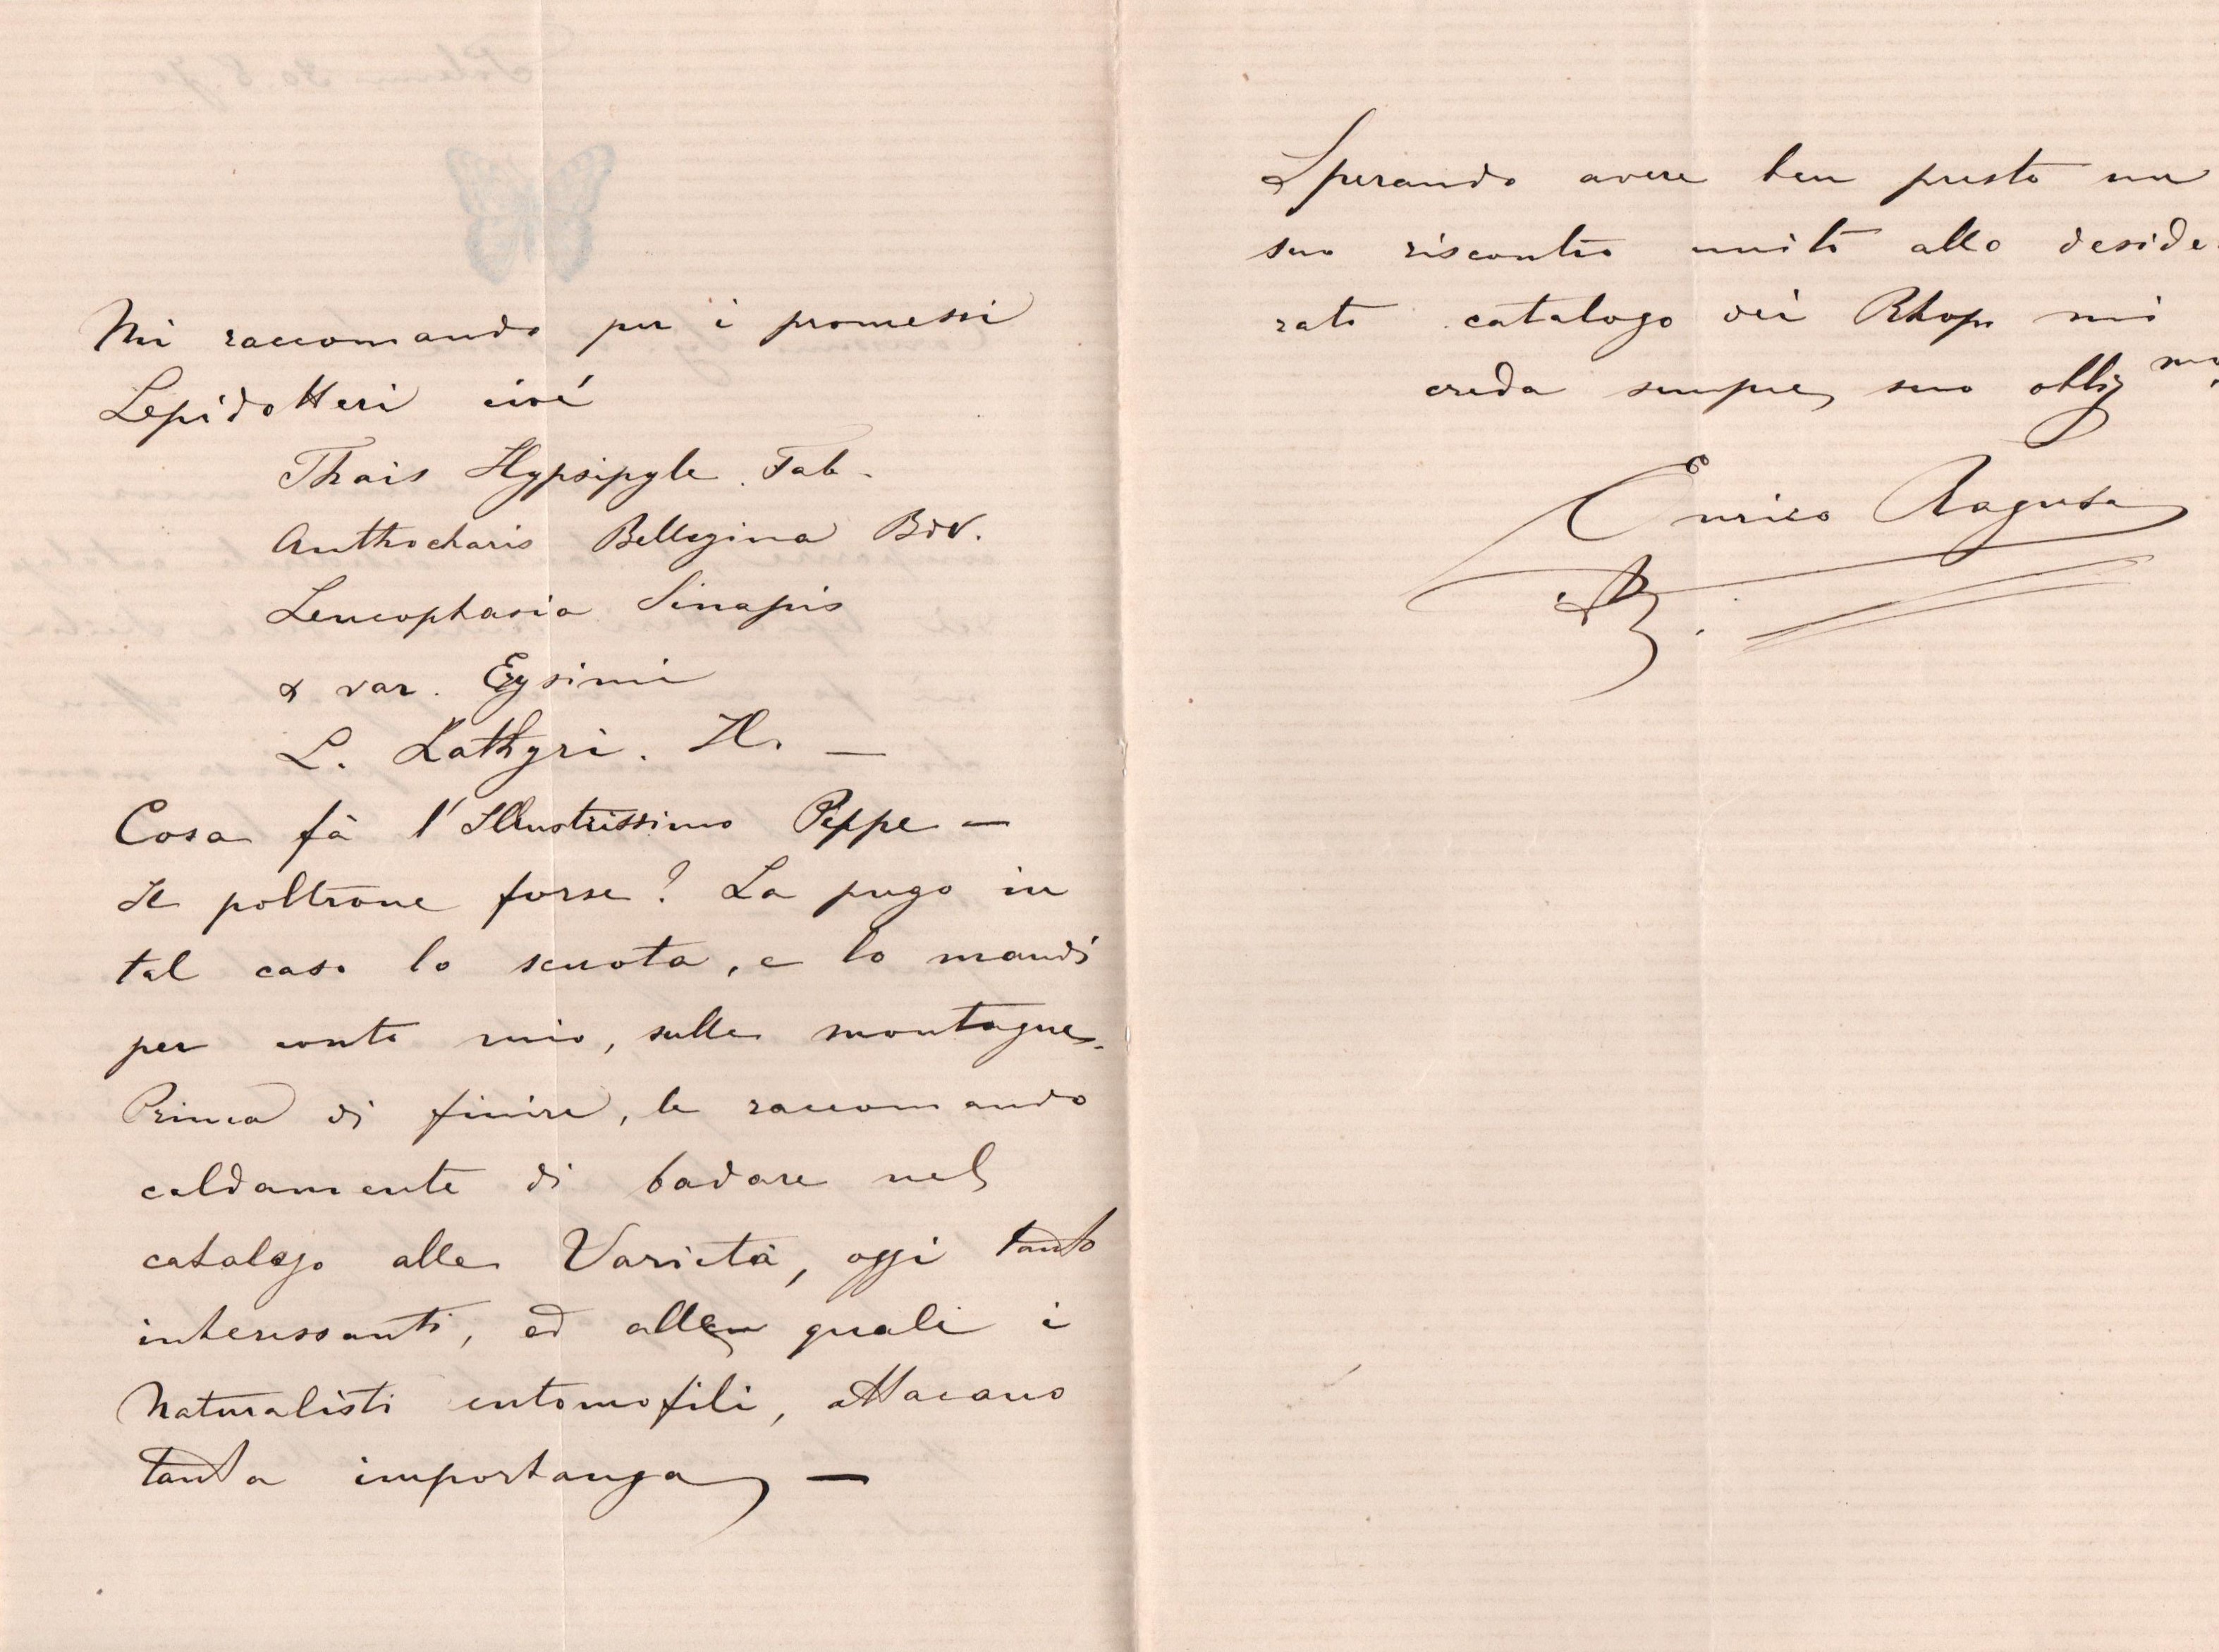 Mi raccomando per i promessi
Lepidotteri cioé
Thais Hypsipyle. Fab.
Anthocharis Bellezina Bdv.
Leucophasia Sinapis
& var. Erysimi
L. Lathyri. H. —
Cosa fà l'Illustrissimo Peppe —
Il poltrone forse? La prego in
tal caso lo scuota, e lo mandi
per conto mio, sulle montagne.
Prima di finire, le raccomando
caldamente di badare nel
catalogo alle Varietà, oggi tanto
interessanti, ed alle quali i
Naturalisti entomofili, attacano
tanta importanza —
Sperando avere ben presto un
suo riscontro unito allo deside-
rato catalogo dei Rhop mi
creda sempre suo obblig mo
Enrico Ragusa